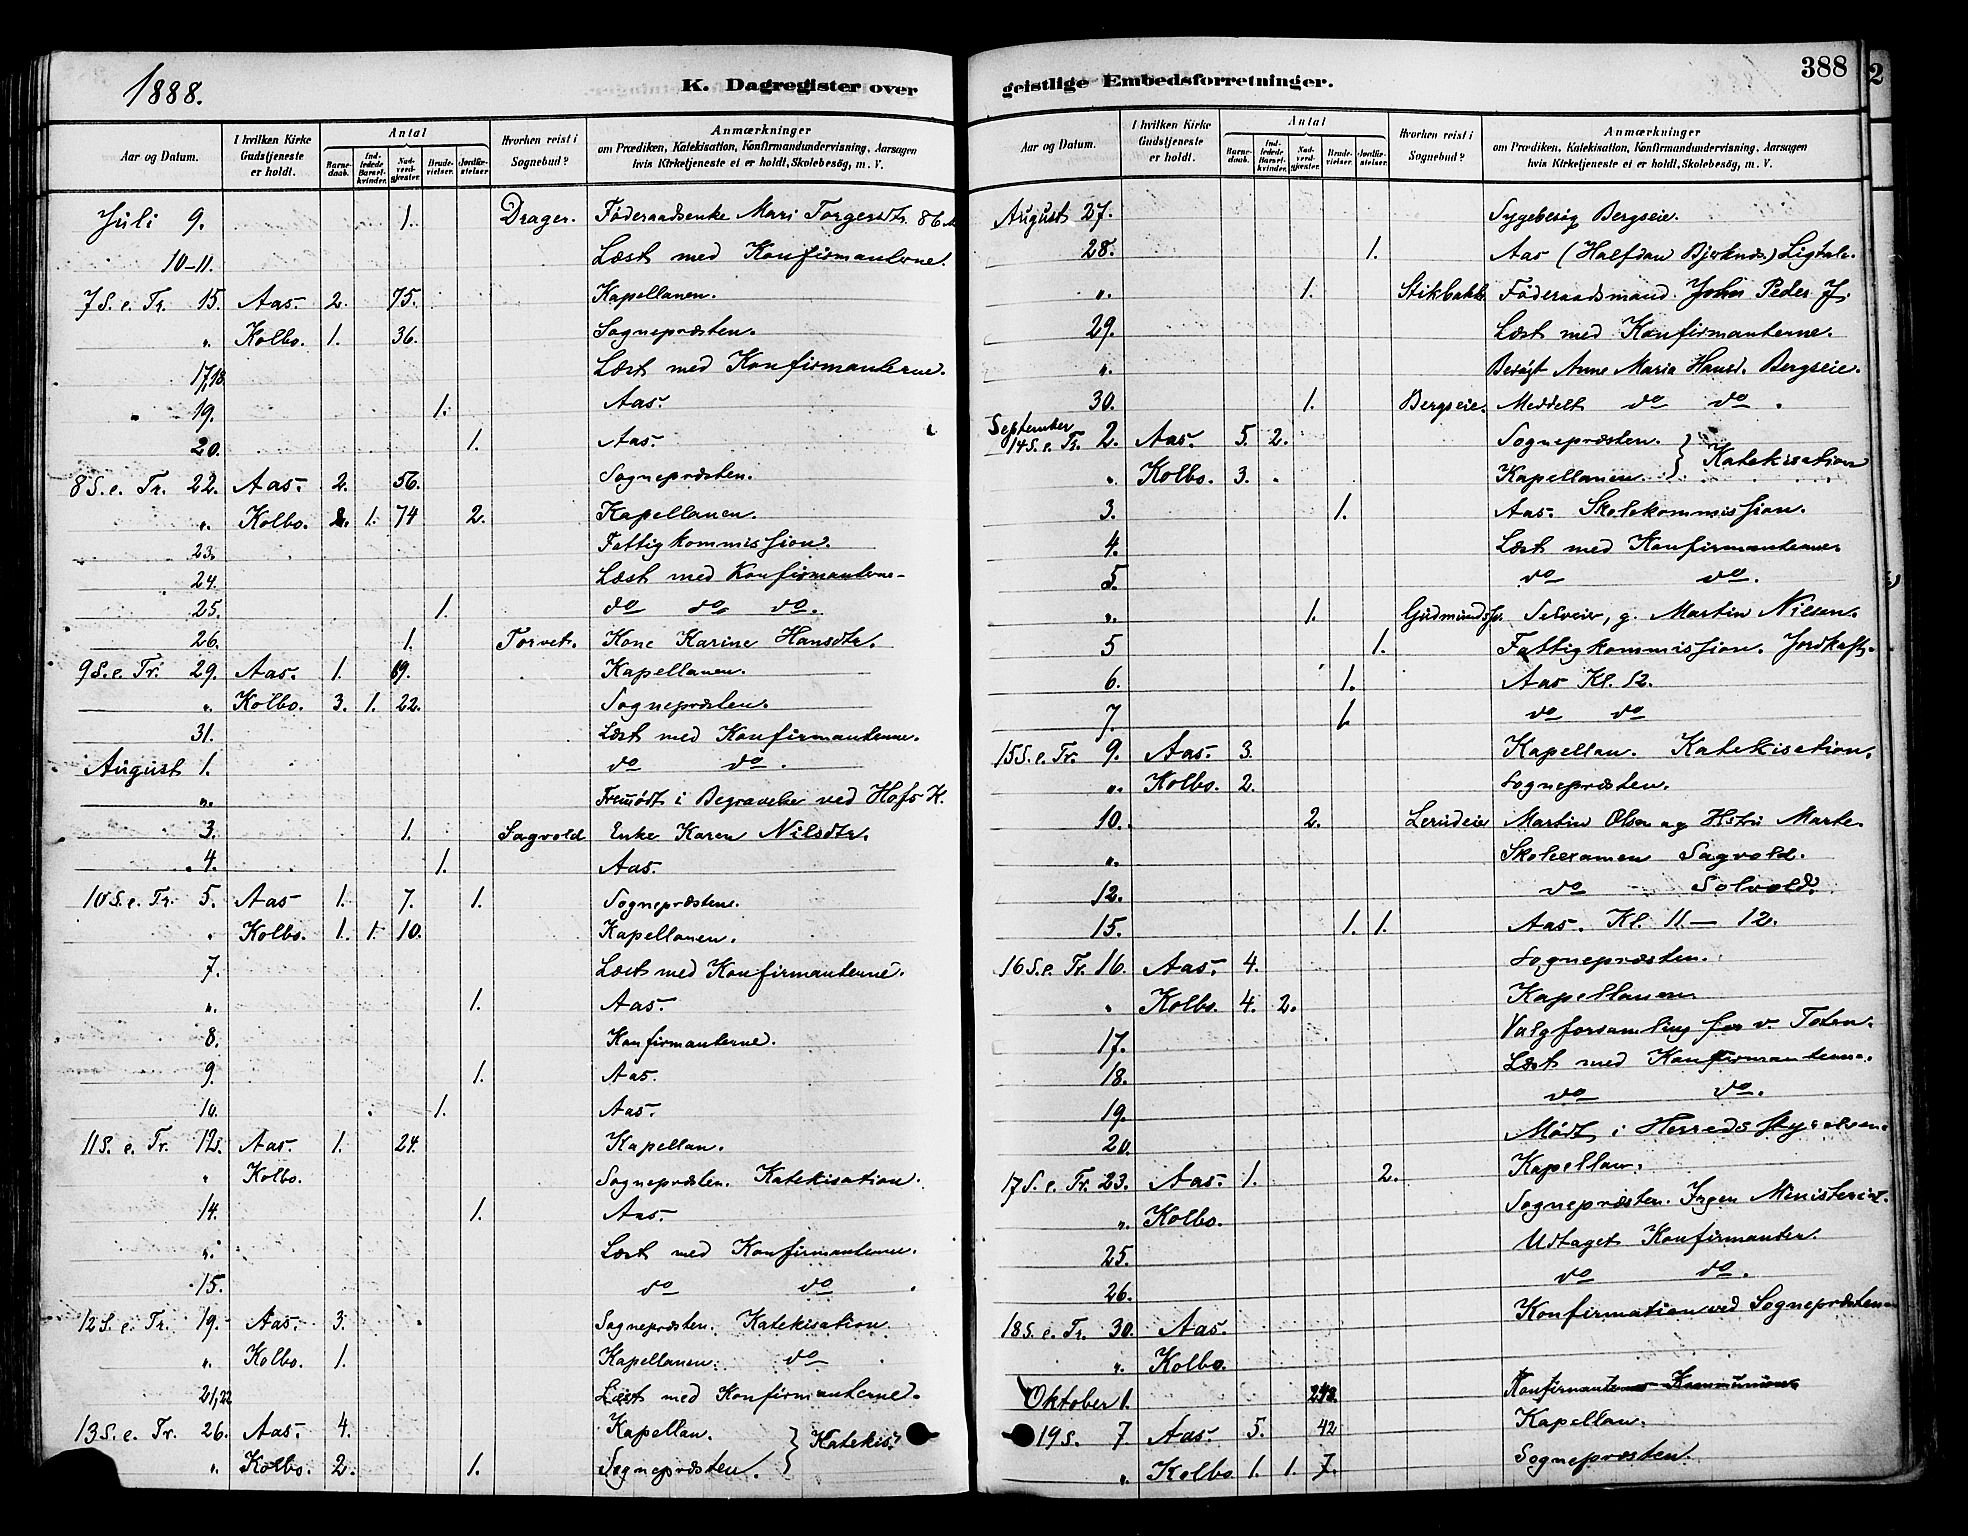 1888.
K. Dagregister over
Aar og Datum. | I hvilken Kirke Gudstjeneste er holdt. | Antal | Barnedaab. | Indledede Barselkvinder. | Nadverdgjester. | Brudevielser. | Jordfæstelser. | Hvorhen reist i Sognebud? | Anmærkninger om Prædiken, Katekisation, Konfirmandundervisning, Aarsagen hvis Kirketjeneste ei er holdt, Skolebesög, m. V.
Juli 9. 1. Drager. Föderaadsenke Mari Torgersdtr. 86
10-11. Læst med Konfirmanterne.
7 S. e. Tr. 15. Aas. 2. 75. Kapellanen.
" Kolbo. 1. 36. Sognepræsten.
17,18. Læst med Konfirmanterne.
19. 1. Aas.
20. 1. Aas.
8 S. e. Tr. 22. Aas. 2. 56. Sognepræsten.
" Kolbo. 2. 1. 74 2. Kapellanen.
23. Fattigkommission.
24. Læst med Konfirmanterne
25. 1. do do do.
26. 1. Torvet. Kone Karine Hansdtr.
9 S. e. Tr. 29. Aas. 1. 69. Kapellanen.
" Kolbo. 3. 1. 22. Sognepræsten.
31. Læst med Konfirmanterne.
August 1. do do.
" Fremödt i Begravelse ved Hofs K.
3. 1. Sagvold Enke Karen Nilsdtr.
4. 1. Aas.
10 S. e. Tr. 5. Aas 1. 7. 1. Sognepræsten.
" Kolbo. 1. 1. 10. Kapellanen.
7. Læst med Konfirmanterne.
" 1. Aas.
8. Konfirmanterne.
9. 1. Aas.
10. 1. Aas.
11 S. e. Tr. 12. Aas. 1. 24. Kapellan.
" Kolbo. Sognepræsten. Katekisation.
14. 1. Aas.
" Læst med Konfirmanterne.
15. do do
12 S. e. Tr. 19. Aas. 3. Sognepræsten. Katekisation
" Kolbo. 1. Kapellanen. do
21,22 Læst med Konfirmanterne.
13 S. e. Tr. 26. Aas. 4. Kapellan. } Katekis.
" Kolbo. 2. 1. Sognepræsten.
geistlige Embedsforretninger. 388
2
Aar og Datum. | I hvilken Kirke Gudstjeneste er holdt. | Antal | Barnedaab. | Indledede Barselkvinder. | Nadverdgjester. | Brudevielser. | Jordfæstelser. | Hvorhen reist i Sognebud? | Anmærkninger om Prædiken, Katekisation, Konfirmandundervisning, Aarsagen hvis Kirketjeneste ei er holdt, Skolebesög, m. V.
August 27. Sygebesög Bergseie.
28. 1. Aas (Halfdan) Ligtale.
" 1. Stikbakk. Föderaadsmand Johs Peder J.
29. Læst med Konfirmanterne.
" Besögt Anne Maria Hansd. Bergseie.
30. 1. Bergseie. Meddelt do do.
September
14 S. e. Tr. 2. Aas. 5. 2. Sognepræsten. } Katekisation
" Kolbo. 3. Kapellanen.
3. 1. Aas. Skolekommission.
4. Læst med Konfirmanterne.
5. do do.
" 1. Selveier, g. Martin Nilsen.
5 1. Fattigkommission. Jordkast.
6. 1. Aas Kl. 12.
7. 1. do do
15 S. e. Tr. 9. Aas. 3. Kapellan. Katekisation.
" Kolbo. 2. Sognepræsten.
10. 2. Lerudeie Martin Olsen og Hstu Marte.
" Skoleexamen Sagvold.
12. do Solvold.
15. 1. 1. Aas. Kl. 11 – 12.
16 S. e. Tr. 16. Aas. 4. Sognepræsten.
" Kolbo. 4. 2. Kapellanen.
17. Valgforsamling for v. Toten.
18. Læst med Konfirmanterne.
19. do do.
20. Mödt i Herredsstyrelsen.
17 S. e. Tr. 23. Aas. 1. 2. Kapellan.
" Kolbo. Sognepræsten. Ingen Ministerial.
25. Udtaget Konfirmanter.
26. do do.
18 S. e. Tr. 30. Aas. Konfirmation ved Sognepræsten
" Kolbo.
Oktober 1. Konfirmanternes Kommunion
19 S. 7. Aas. 5. 42 Kapellan.
" Kolbo 1. 1. 7. Sognepræsten.